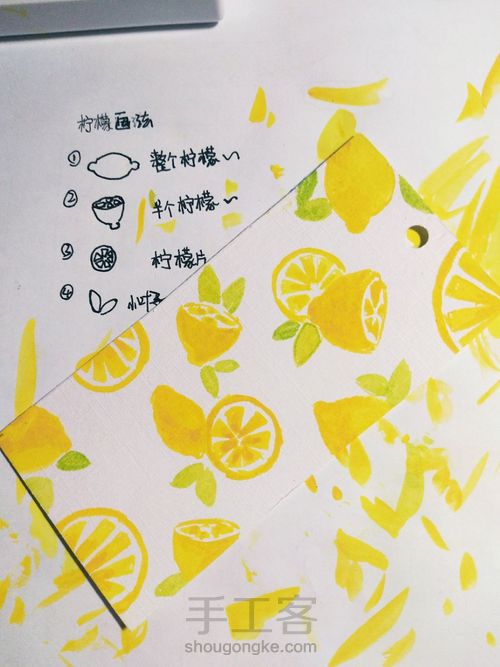 柠檬画法
① 整个柠檬~
② 半个柠檬~
③ 柠檬片
④ 小叶子
手工客
shougongke.com